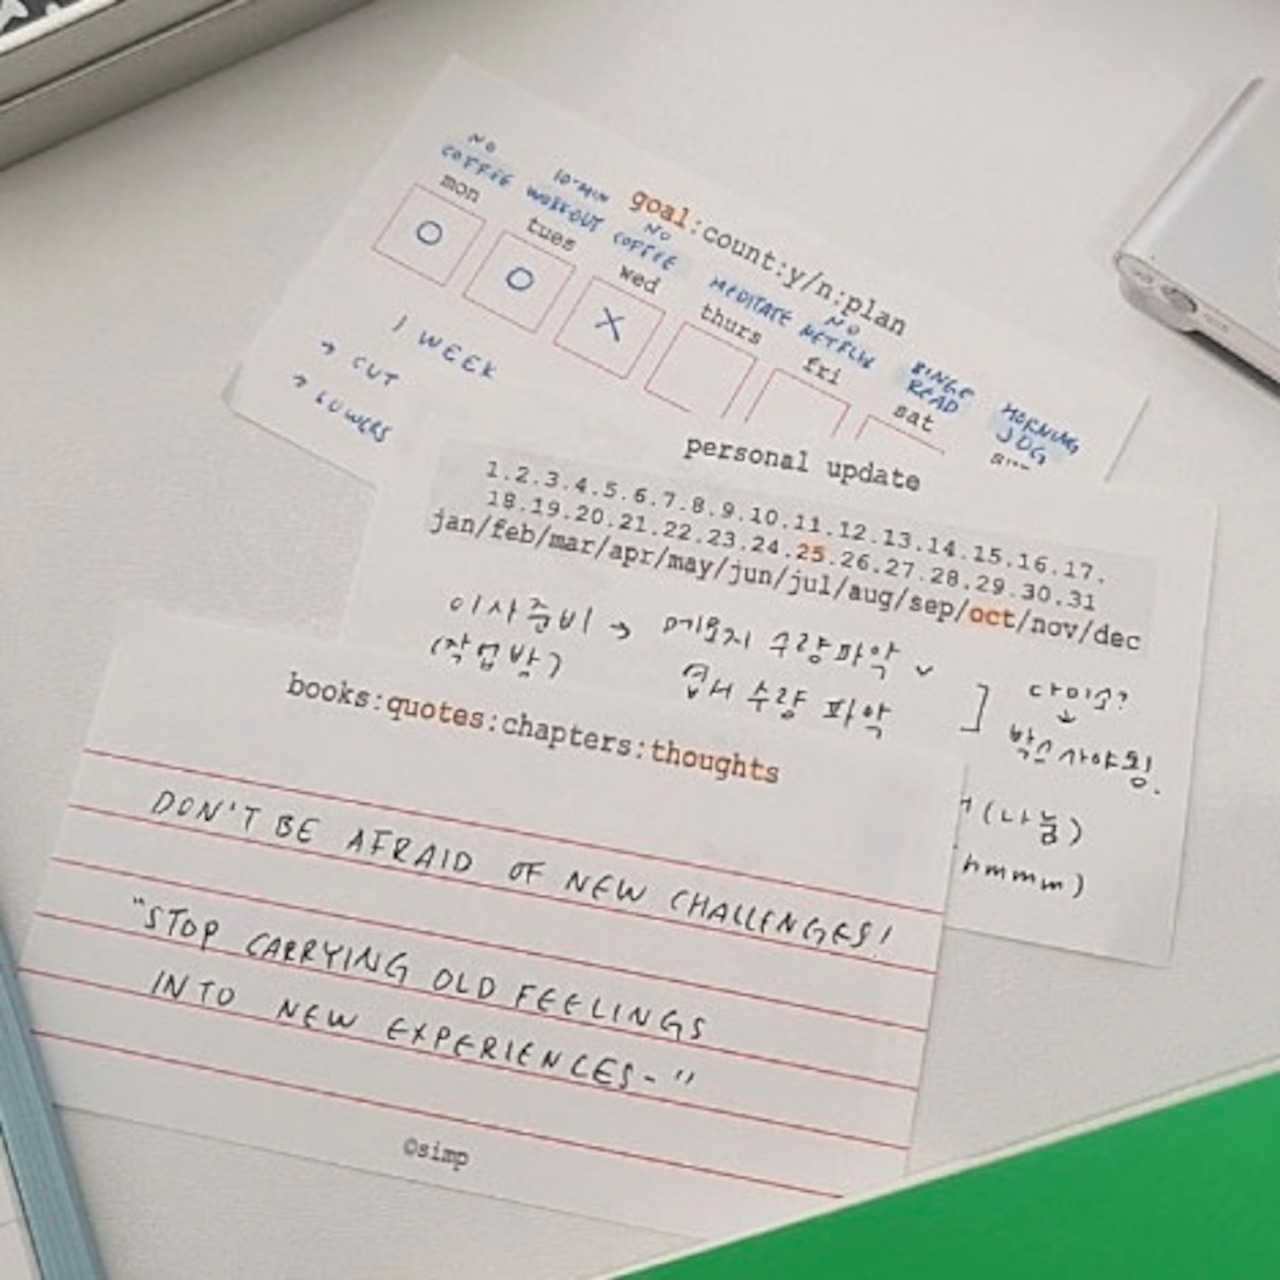 goal:count:y/n:plan
NO COFFEE
10-MIN WORKOUT
NO COFFEE
MEDITATE
NO NETFLIX
BINGE READ
MORNING JOG
mon tues wed thurs fri sat
O O X
1 WEEK
→ CUT
→ LOWERS
personal update
1.2.3.4.5.6.7.8.9.10.11.12.13.14.15.16.17.
18.19.20.21.22.23.24.25.26.27.28.29.30.31
jan/feb/mar/apr/may/jun/jul/aug/sep/oct/nov/dec
이사준비 → 메모지 수량파악 ✓
(작업방) 엽서 수량 파악
다이소?
↓
박스 사야됭!
(나눔)
hmmm)
books:quotes:chapters:thoughts
DON'T BE AFRAID OF NEW CHALLENGES!
"STOP CARRYING OLD FEELINGS
INTO NEW EXPERIENCES-"
©simp